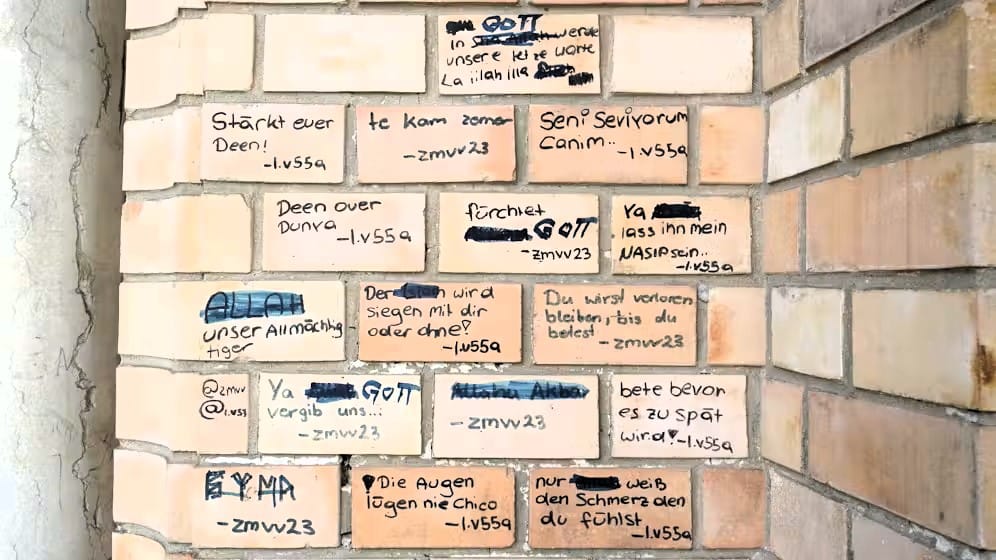 GOTT
In werden
unsere letzte Worte
La iilah illa
Stärkt euer
Deen!
-l.v55a
te kam zemer
-zmvv23
Seni Seviyorum
Canim..
-l.v55a
Deen over
Dunya
-l.v55a
fürchtet
GOTT
-zmvv23
Ya
lass ihn mein
NASIP sein..
-l.v55a
ALLAH
unser Allmächtig
tiger
Der Islam wird
siegen mit dir
oder ohne!
-l.v55a
Du wirst verloren
bleiben, bis du
betest
-zmvv23
@zmvv
@l.v55
Ya Allah GOTT
vergib uns...
-zmvv23
Allahu Akbar
-zmvv23
bete bevor
es zu spät
wird! -l.v55a
-zmvv23
Die Augen
lügen nie Chico
-l.v55a
nur weiß
den Schmerz den
du fühlst
-l.v55a